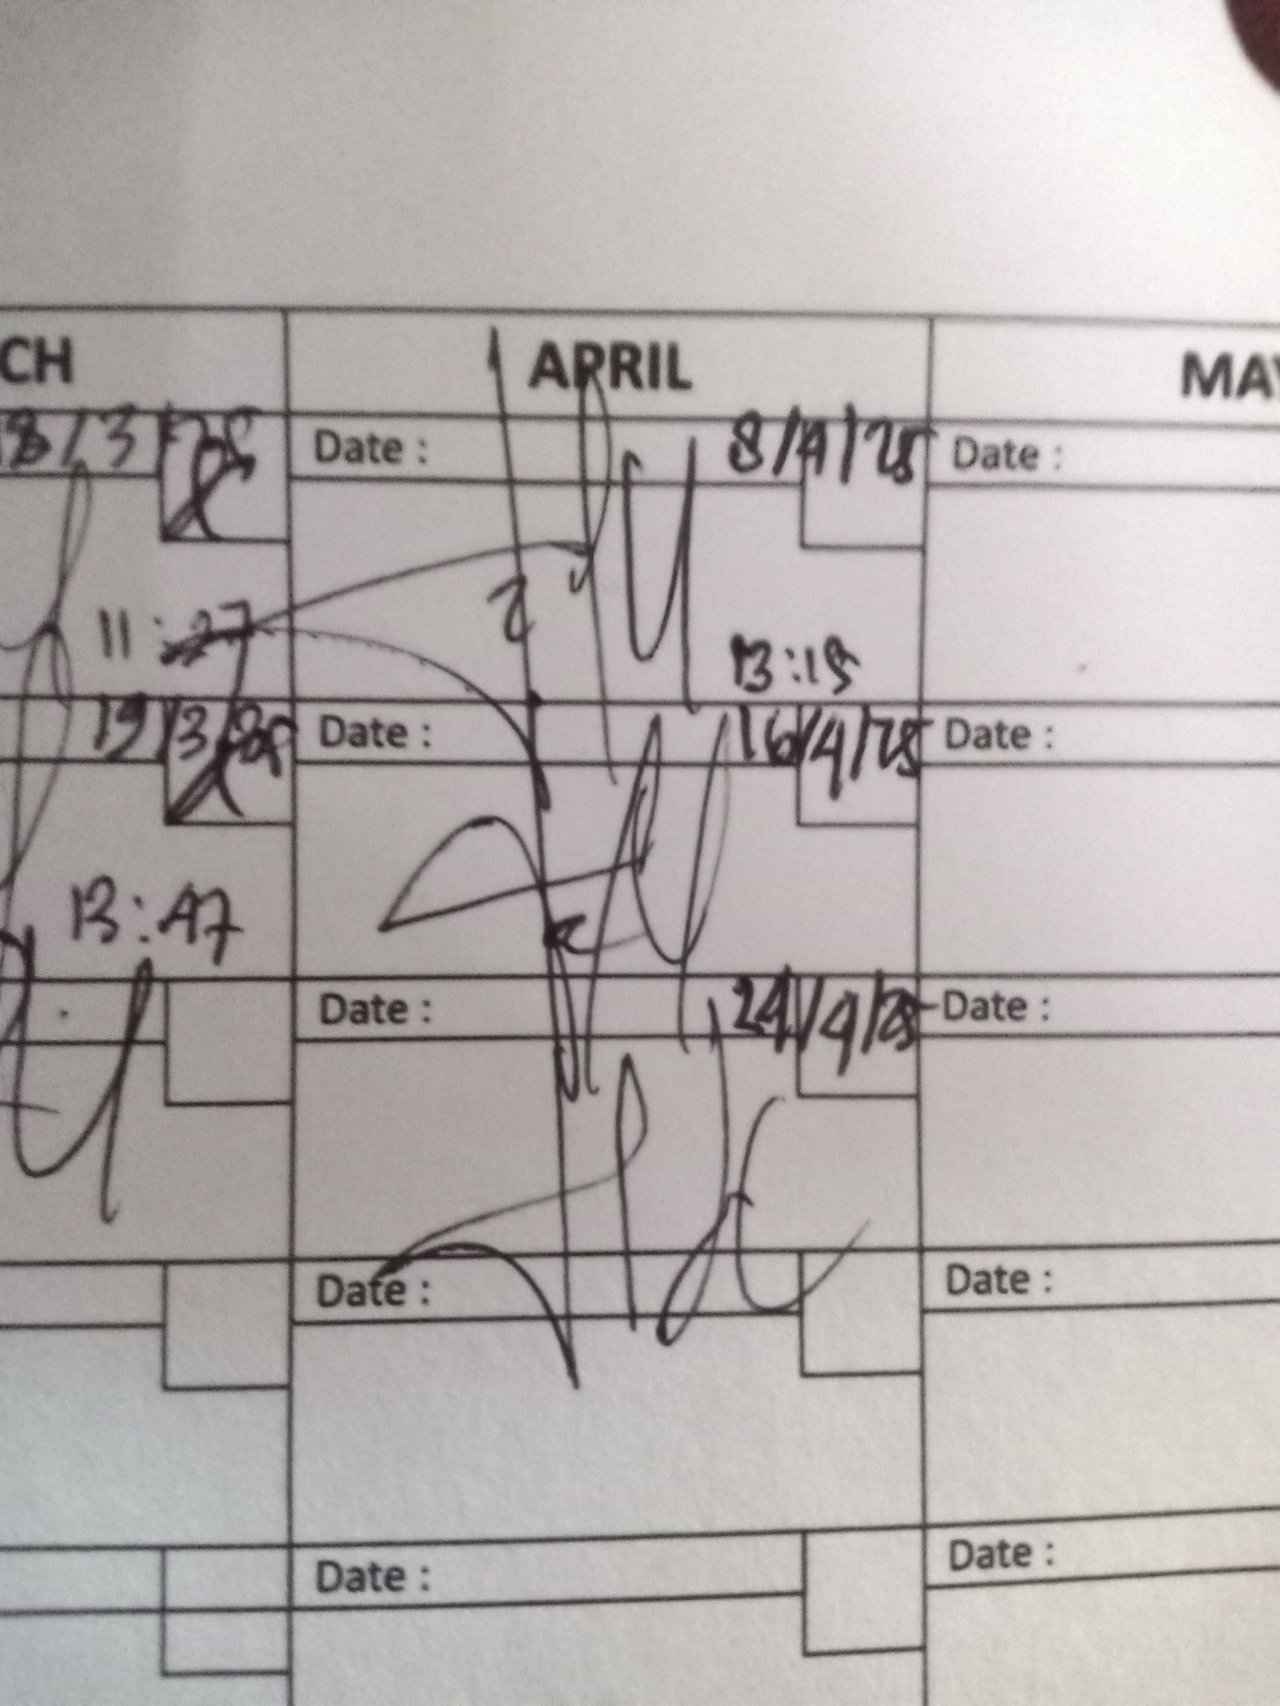 CH APRIL MAY
18/3/25 Date : 8/4/25 Date :
11:27 13:15
19/3/25 Date : 16/4/25 Date :
13:47
Date : 24/4/25 Date :
Date : Date :
Date : Date :